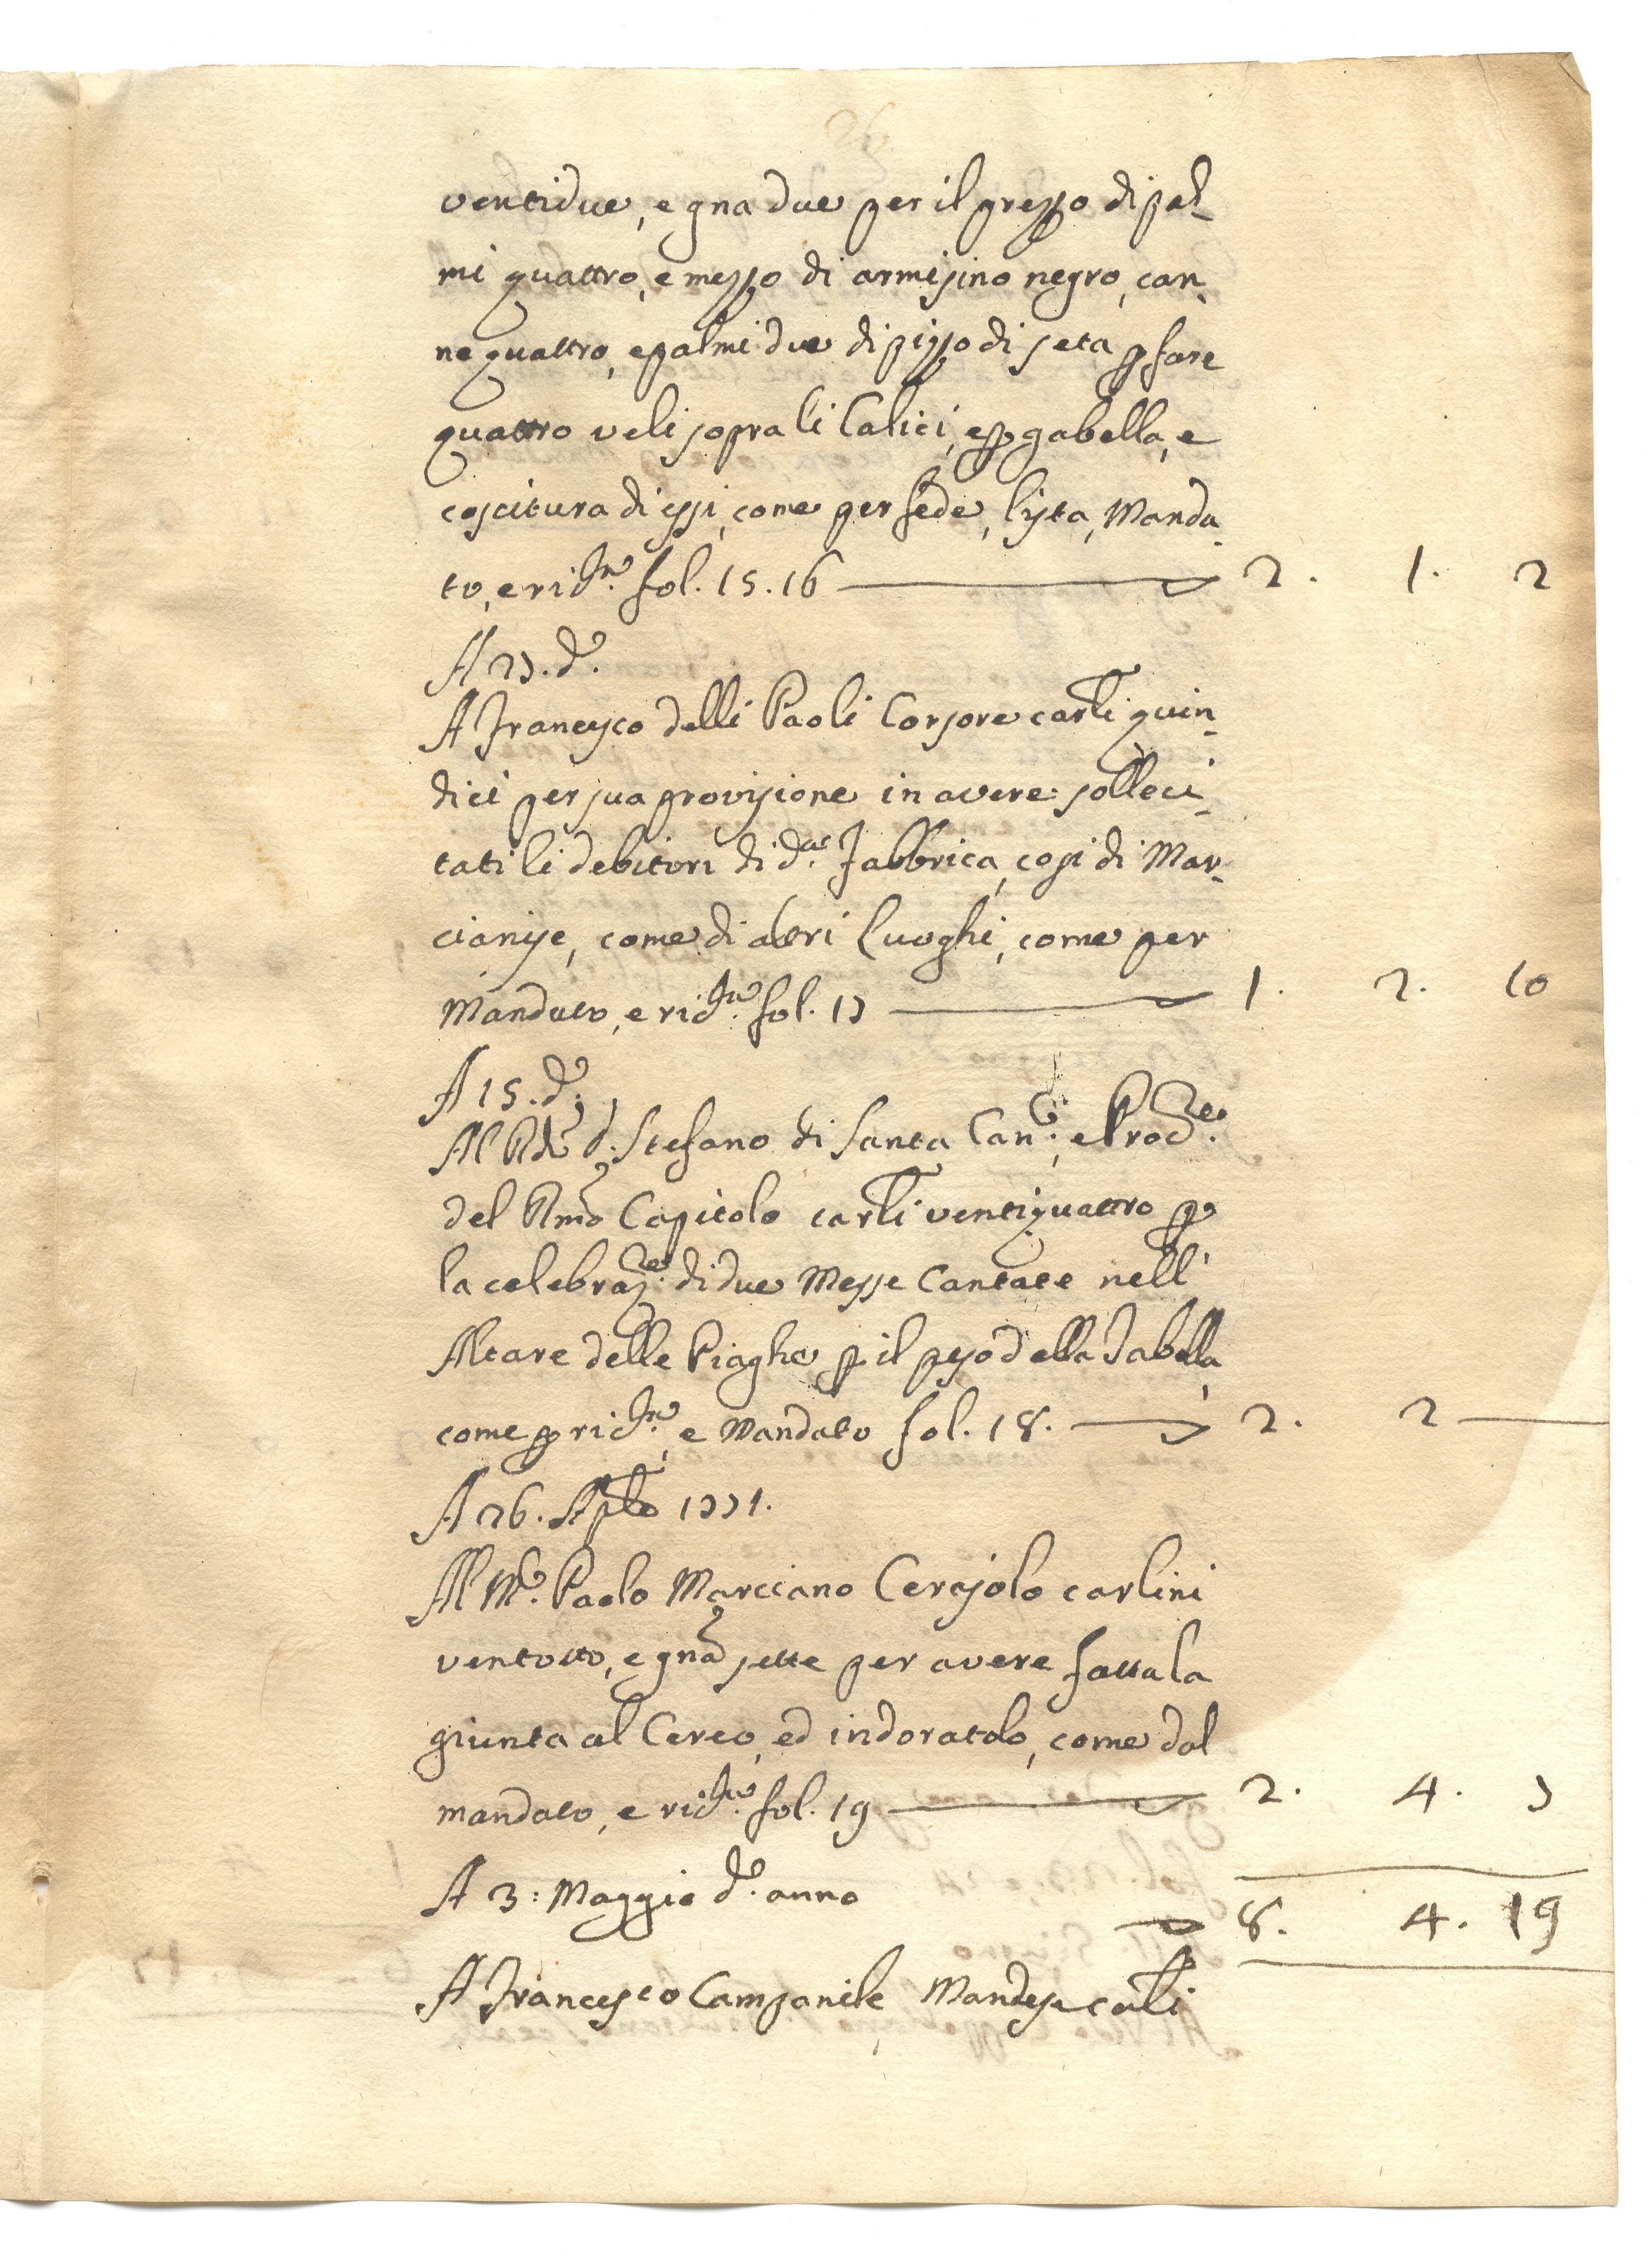 ventidue, e gna due per il prezzo di pal-
mi quattro, e mezzo di armisino negro, can-
ne quattro, e palmi due di pizzo di seta p fare
quattro veli sopra li Calici, e p gabella, e
coscitura di essi, come per fede, lista, Manda-
to, e ric.ta fol. 15. 16 2. 1. 2
A 23. d.o
A Francesco delli Paoli Corsore carli quin-
dici per sua provisione in avere solleci-
tati li debitori di d.a Fabbrica, cosi di Mar-
cianise, come di altri Luoghi, come per
Mandato, e ric.ta fol. 17 1. 2. 10
A 25. d.o
Al Rdo d. Stefano di Santa Can.o, e Proc.re
del Rmo Capitolo carli ventiquattro p
la celebraz.e di due Messe Cantate nell'
Altare delle Piaghe p il peso della Tabella,
come p ric.ta, e Mandato fol. 18. 2. 2
A 26. Aple 1771.
Al M.co Paolo Marciano Cerajolo carlini
ventotto, e gna sette per avere fatta la
giunta al Cereo, ed indoratolo, come dal
mandato, e ric.ta fol. 19 2. 4. 7
A 3: Maggio d.o anno
8. 4. 19
A Francesco Campanile Mandese carli